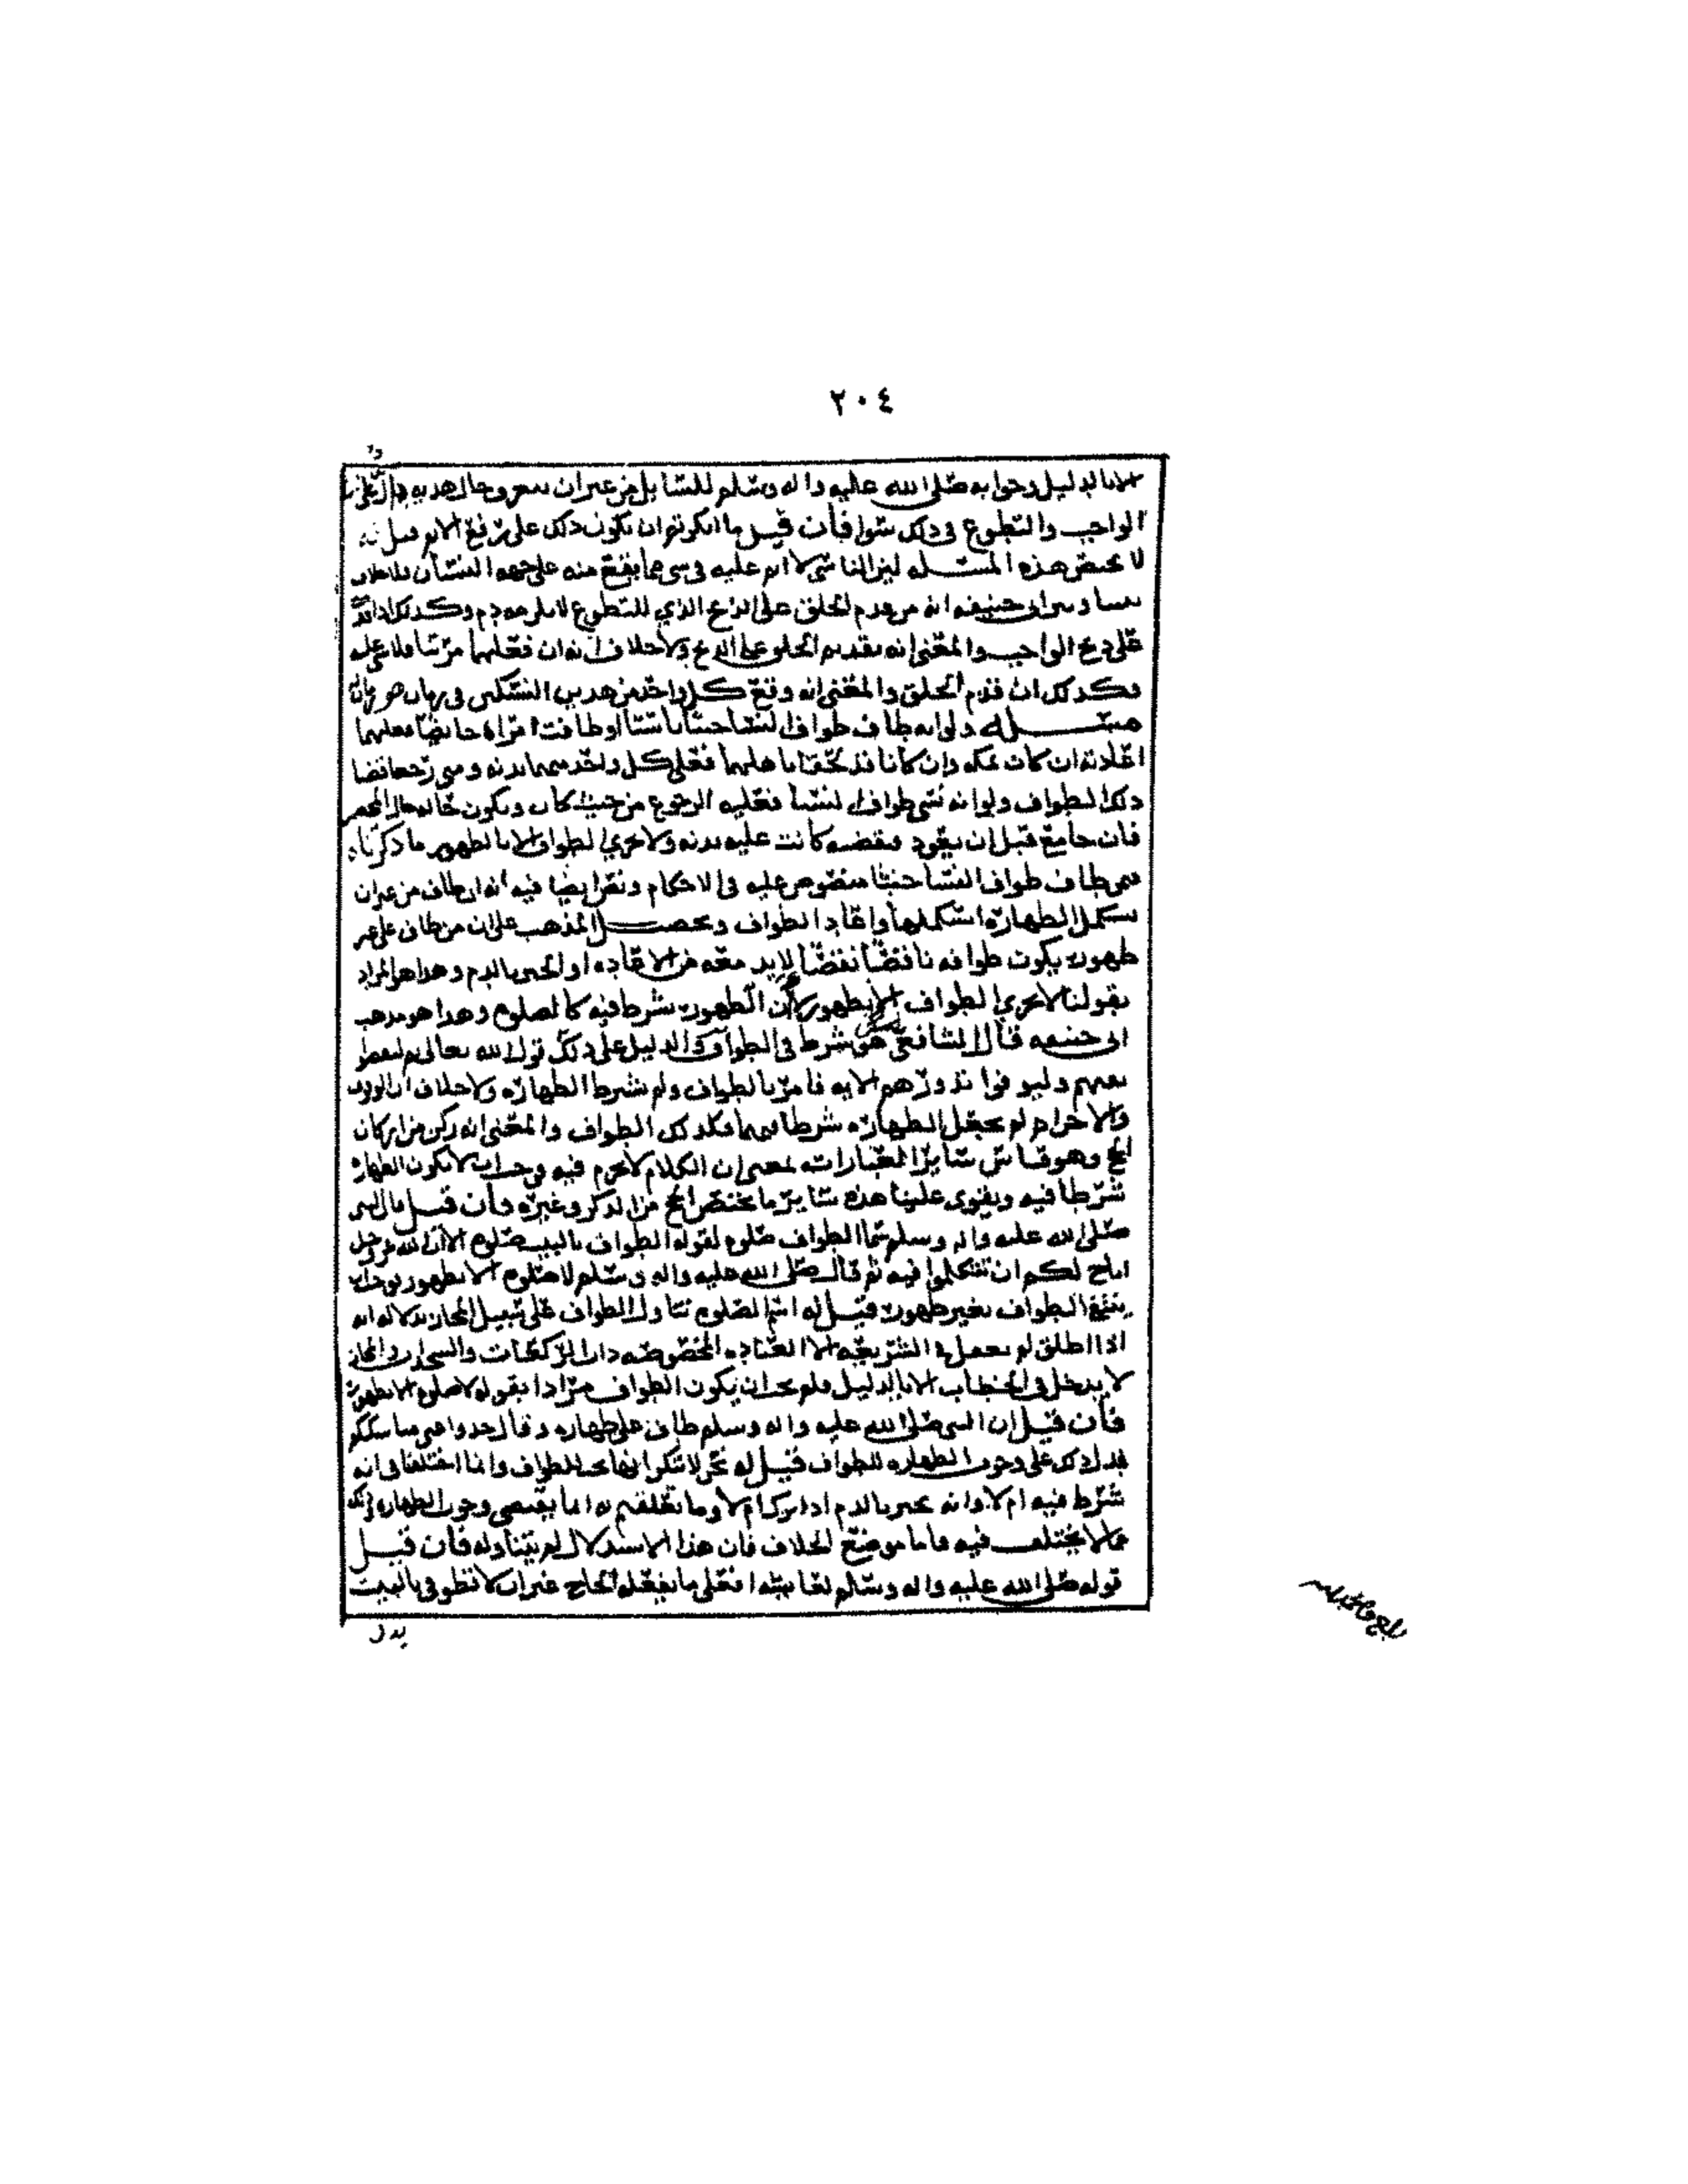 ٢٠٤
الا بالدليل وجوابه صلى الله عليه واله وسلم للسايل من غير ان يعرف حال هديه
الواجب والتطوع في ذلك سوا فان قيل ما انكرتم ان يكون ذلك على رفع الاثم قيل له
لا يختص هذه المسئله لان الناسي لا اثم عليه في شي مما يقع منه على جهه النسيان
ابي حنيفه انه من قدم الحلق على الذبح الذي للتطوع لا يلزمه دم وكذلك اذا
على ذبح الواجب والمعنى انه تقديم الحلق على الذبح ولا خلاف انه ان فعلهما مرتبا فلا شي عليه
فكذلك ان قدم الحلق والمعنى انه وقع كل واحد من هذين النسكين في زمان هو
مسئله ولو انه طاف طواف النسا جنبا ناسيا او طافت امراة حايضا فعليهما
اعادته ان كانا بمكه وان كانا قد لحقا باهلهما فعلى كل واحد منهما بدنه ومتى رجعا قضيا
ذلك الطواف ولو انه نسي طواف النسا فعليه الرجوع من حيث كان ويكون حاله حال المحصر
فان جامع قبل ان يعود فيقضيه كانت عليه بدنه ولا يجزي الطواف الا بالطهور ما ذكرناه
فمن طاف طواف النسا جنبا منصوص عليه في الاحكام ونص ايضا فيه انه ان طاف من غير ان
يستكمل الطهارة استكملها واعاد الطواف وتحصيل المذهب على ان من طاف على غير
طهور يكون طوافه ناقصا نقصا لا بد معه من الاعاده او الجبر بالدم وهذا هو المراد
بقولنا لا يجزي الطواف الا بطهور لا ان الطهور شرط فيه كالصلوه وهذا هو مذهب
ابي حنيفه قال الشافعي هو شرط في الطواف والدليل على ذلك قول الله تعالى ثم ليقضوا
تفثهم وليوفوا نذورهم الايه فامر بالطواف ولم يشرط الطهاره ولا خلاف ان الوقوف
والاحرام لم تجعل الطهاره شرطا فيهما فكذلك الطواف والمعنى انه ركن من اركان
الحج وهو قياس سائر العبارات بمعنى ان الكلام لا يحرم فيه وجب ان لا تكون الطهاره
شرطا فيه ويقوى علينا هذه ساير ما يختص الحج من الذكر وغيره فان قيل فان النبي
صلى الله عليه واله وسلم سما الطواف صلوه لقوله الطواف بالبيت صلوه الا ان الله عز وجل
اباح لكم ان تتكلموا فيه ثم قال صلى الله عليه واله وسلم لا صلوه الا بطهور فوجب ان
يمتنع الطواف بغير طهور قيل له اسم الصلوه تناول الطواف على سبيل المجاز بدلاله انه
اذا اطلق لم يعمل في الشريعه الا العباده المخصوصه ذات الركعات والسجدات والمجاز
لا يدخل في الخطاب الا بالدليل فلم يجز ان يكون الطواف مرادا بقوله لا صلوه الا بطهور
فان قيل ان النبي صلى الله عليه واله وسلم طاف على طهاره وقال خذوا عني مناسككم
فدل ذلك على وجوب الطهاره للطواف قيل له نحن لا ننكر انها تجب للطواف وانما اختلفنا في انه
شرط فيه ام لا وانه يجبر بالدم اذا ترك ام لا وما تعلقتم به انما يقتضي وجوب الطهاره وذلك
مما لا يختلف فيه فاما موضع الخلاف فان هذا الاستدلال لم يتناوله فان قيل
قوله صلى الله عليه واله وسلم لعايشه افعلي ما يفعله الحاج غير ان لا تطوفي بالبيت
يدل